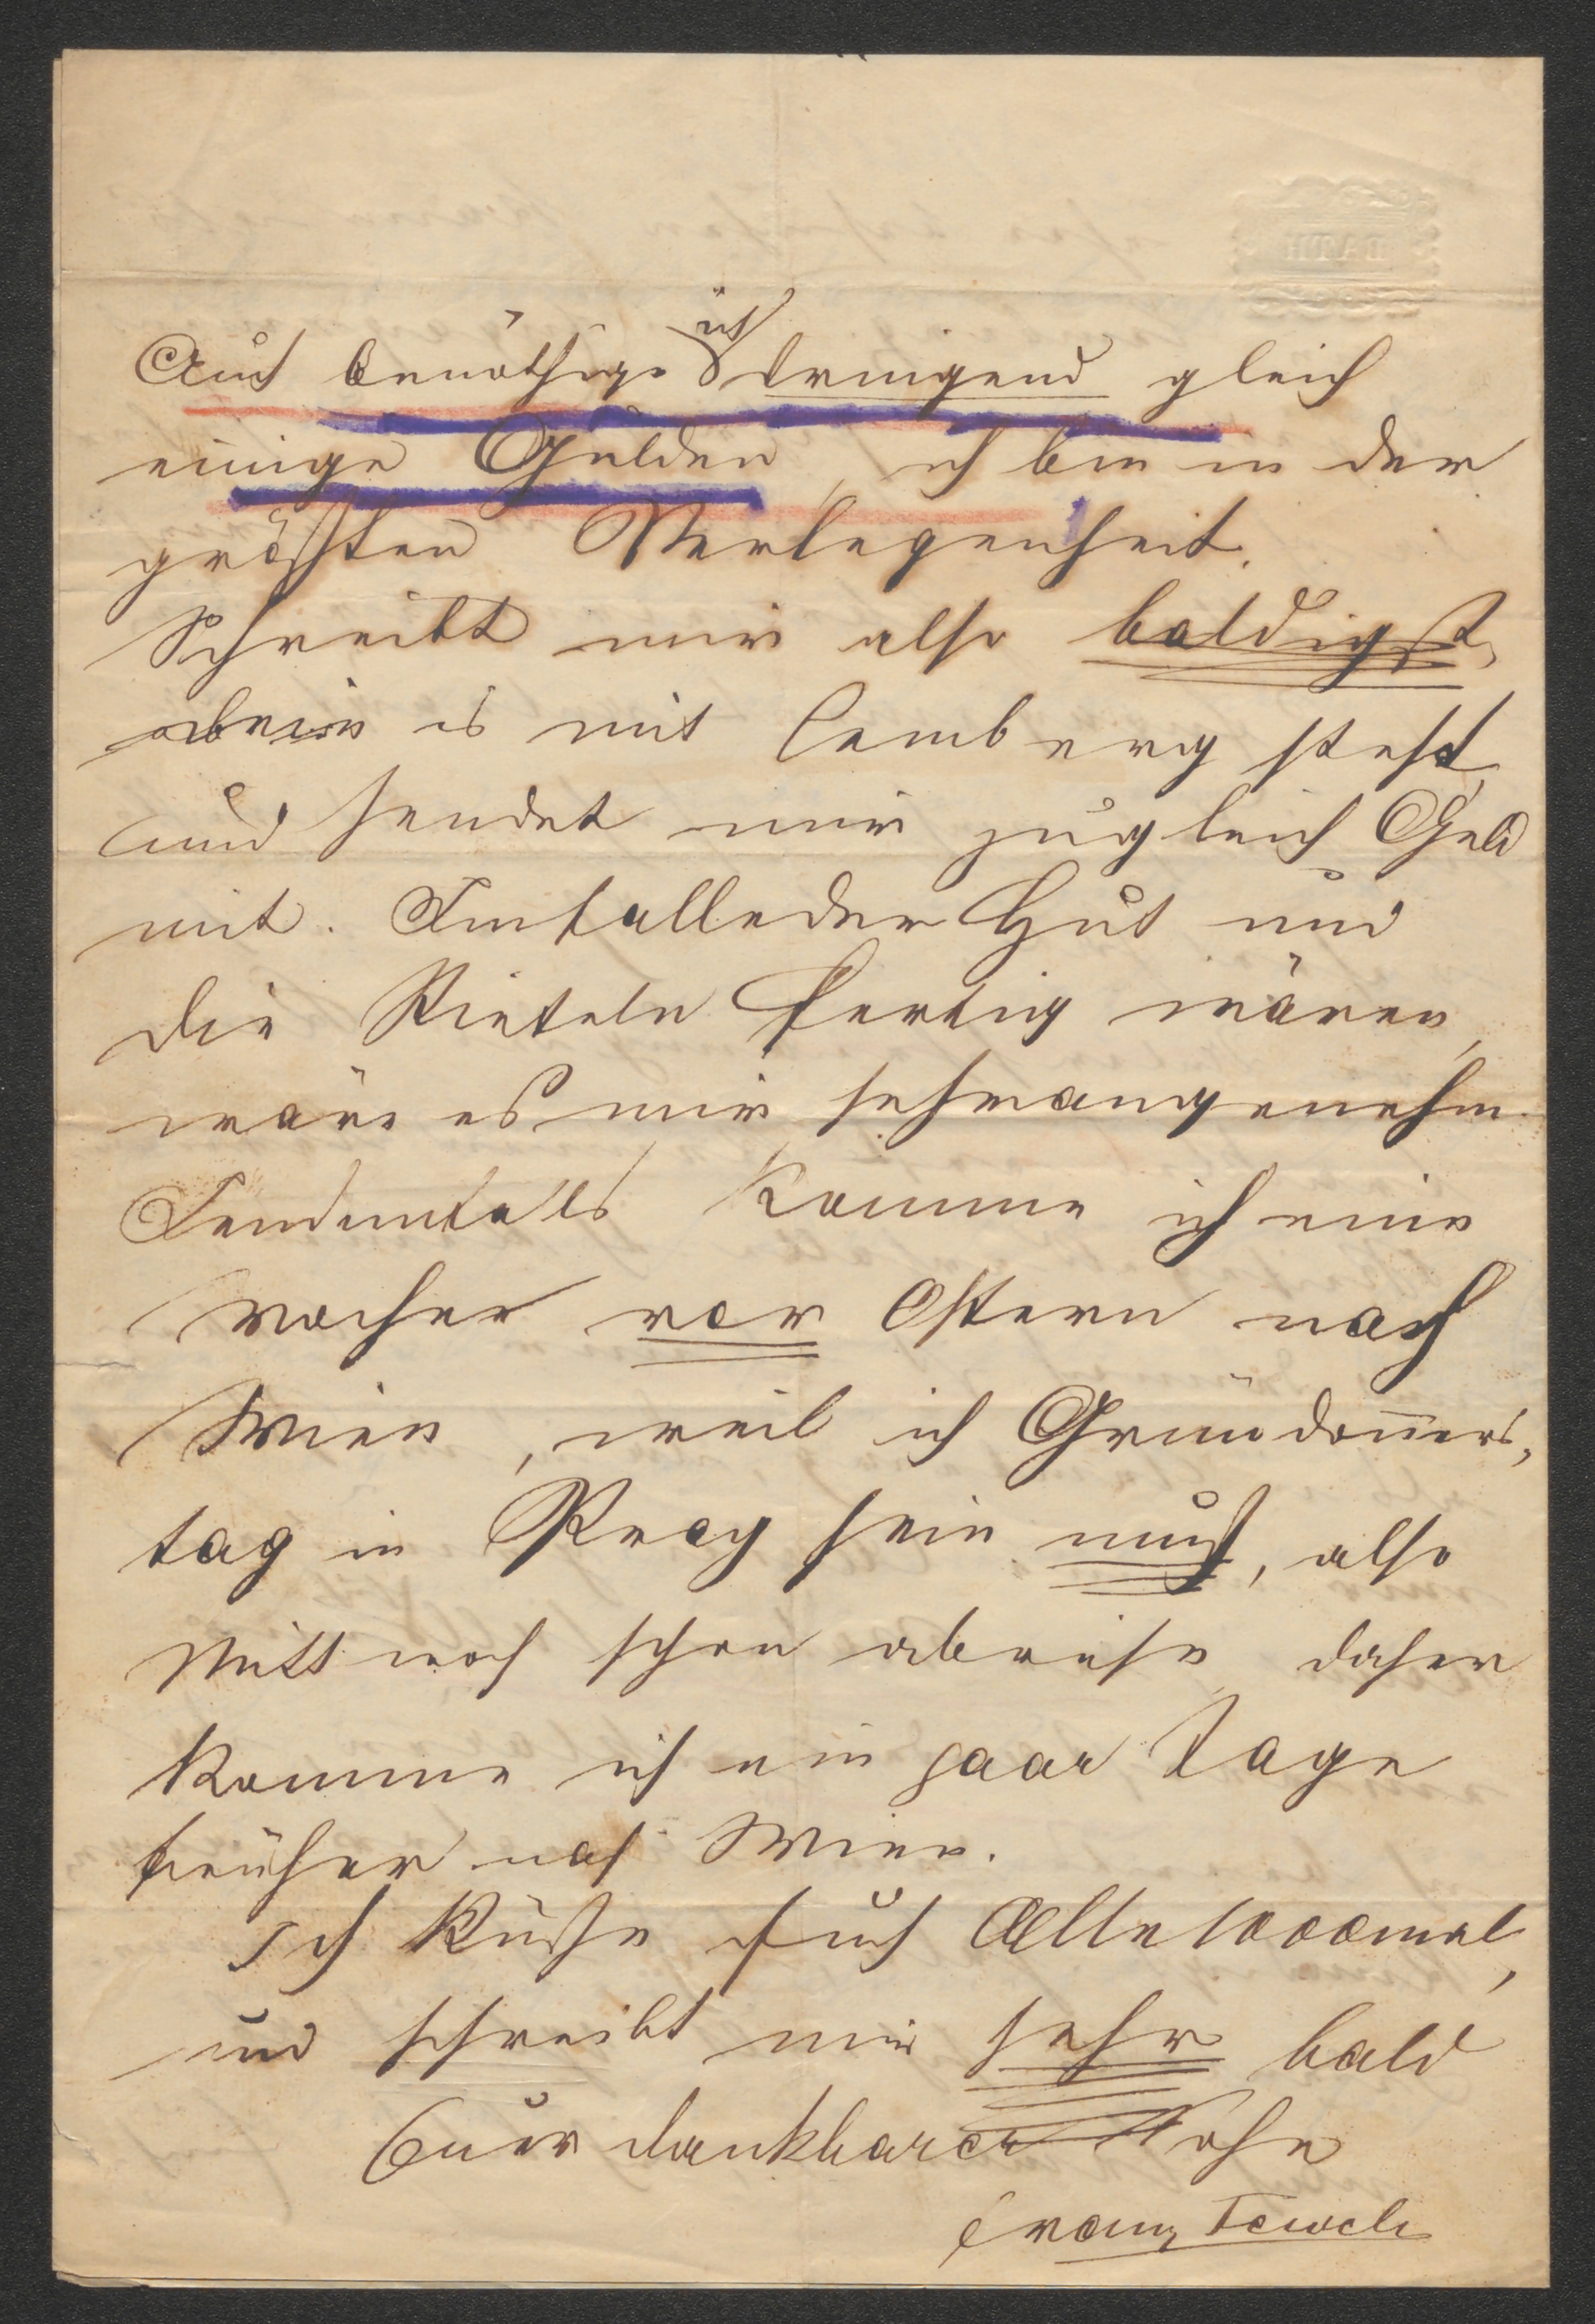 BATH
Auch benöthige ich dringend gleich
einige Gulden, ich bin in der
größten Verlegenheit.
Schreibt mir also baldigst,
wie es mit Lemberg steht,
und sendet mir zugleich Geld
mit. Imfalle der Hut und
die Stiefeln fertig wären,
wäre es mir sehr angenehm.
Jedenfalls komme ich eine
Woche vor Ostern nach
Wien, weil ich Gründonners-
tag in Prag sein muß, also
Mittwoch schon abreise, daher
komme ich ein paar Tage
früher nach Wien.
Ich küße Euch Alle 1000mal,
und schreibt mir sehr bald
Euer dankbarer Sohn
Franz Tewele